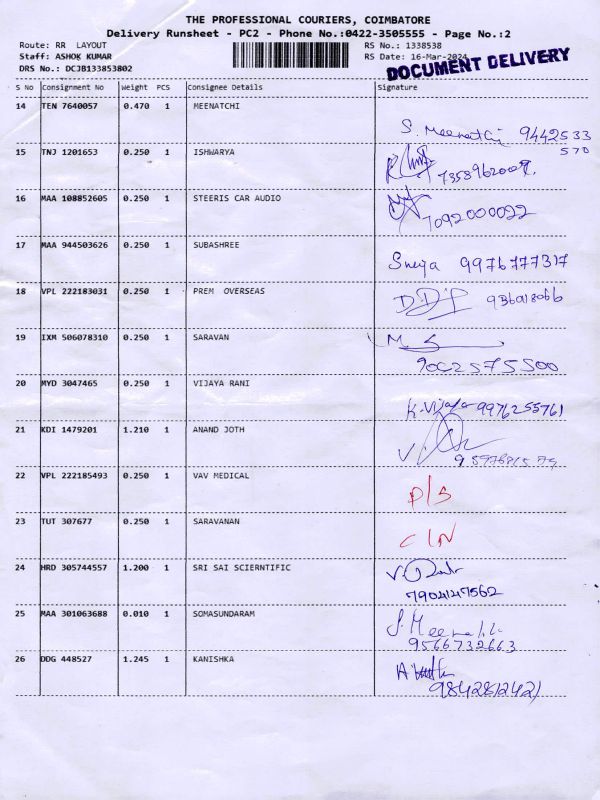 THE PROFESSIONAL COURIERS, COIMBATORE
Delivery Runsheet - PC2 - Phone No.:0422-3505555 - Page No.:2
Route: RR LAYOUT RS No.: 1338538
Staff: ASHOK KUMAR RS Date: 16-Mar-2024
DRS No.: DCJB133853802 DOCUMENT DELIVERY
S No Consignment No Weight PCS Consignee Details Signature
14 TEN 7640057 0.470 1 MEENATCHI
S. Meenatchi 9442533
570
15 TNJ 1201653 0.250 1 ISHWARYA
7358962007
16 MAA 108852605 0.250 1 STEERIS CAR AUDIO
7092000022
17 MAA 944503626 0.250 1 SUBASHREE
Sneja 9976777317
18 VPL 222183031 0.250 1 PREM OVERSEAS
19 IXM 506078310 0.250 1 SARAVAN
M S
9002575500
20 MYD 3047465 0.250 1 VIJAYA RANI
K. Vijaya 9976255761
21 KDI 1479201 1.210 1 ANAND JOTH
22 VPL 222185493 0.250 1 VAV MEDICAL
D/S
23 TUT 307677 0.250 1 SARAVANAN
C/N
24 HRD 305744557 1.200 1 SRI SAI SCIERNTIFIC
7904147562
25 MAA 301063688 0.010 1 SOMASUNDARAM
9566732663
26 DDG 448527 1.245 1 KANISHKA
9842812421